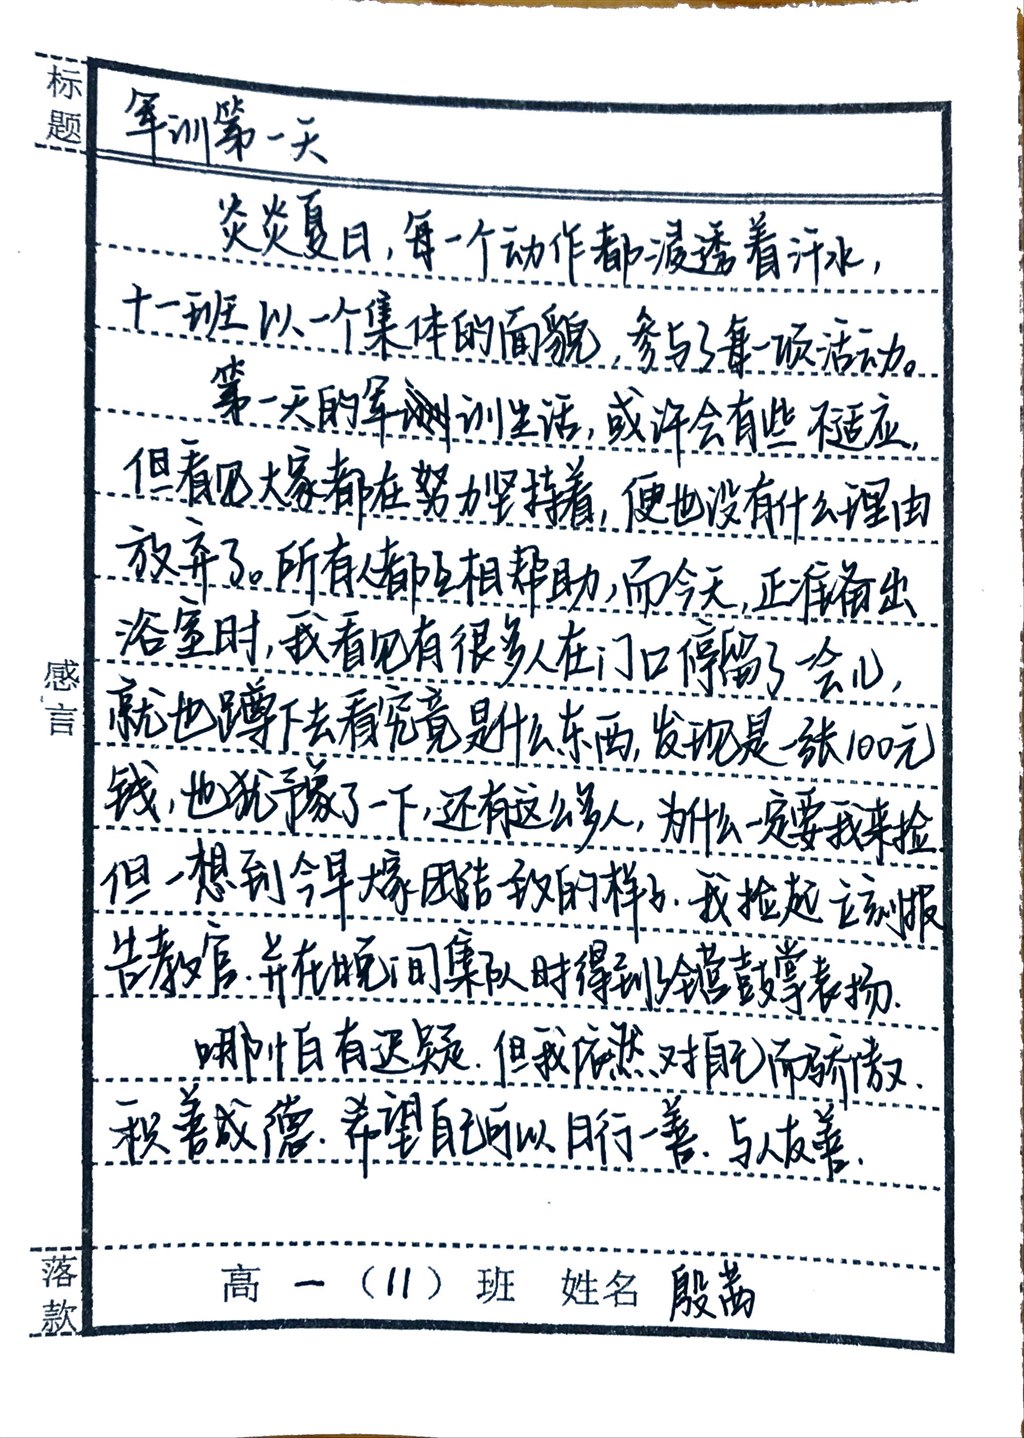 标题
军训第一天
炎炎夏日，每一个动作都浸透着汗水，
十一班以一个集体的面貌，参与了每一项活动。
第一天的军训生活，或许会有些不适应，
但看见大家都在努力坚持着，便也没有什么理由
放弃了。所有人都互相帮助，而今天，正准备出
浴室时，我看见有很多人在门口停留了一会儿，
就也蹲下去看究竟是什么东西，发现是一张100元
钱，也犹豫了一下，还有这么多人，为什么一定要我来捡.
但一想到今早大家团结一致的样子.我捡起立刻报
告教官.并在晚间集队时得到全营鼓掌表扬.
哪怕有迟疑.但我依然对自己而骄傲.
积善成德.希望自己可以日行一善.与人友善.
感言
落款
高一（11）班 姓名 殷茜